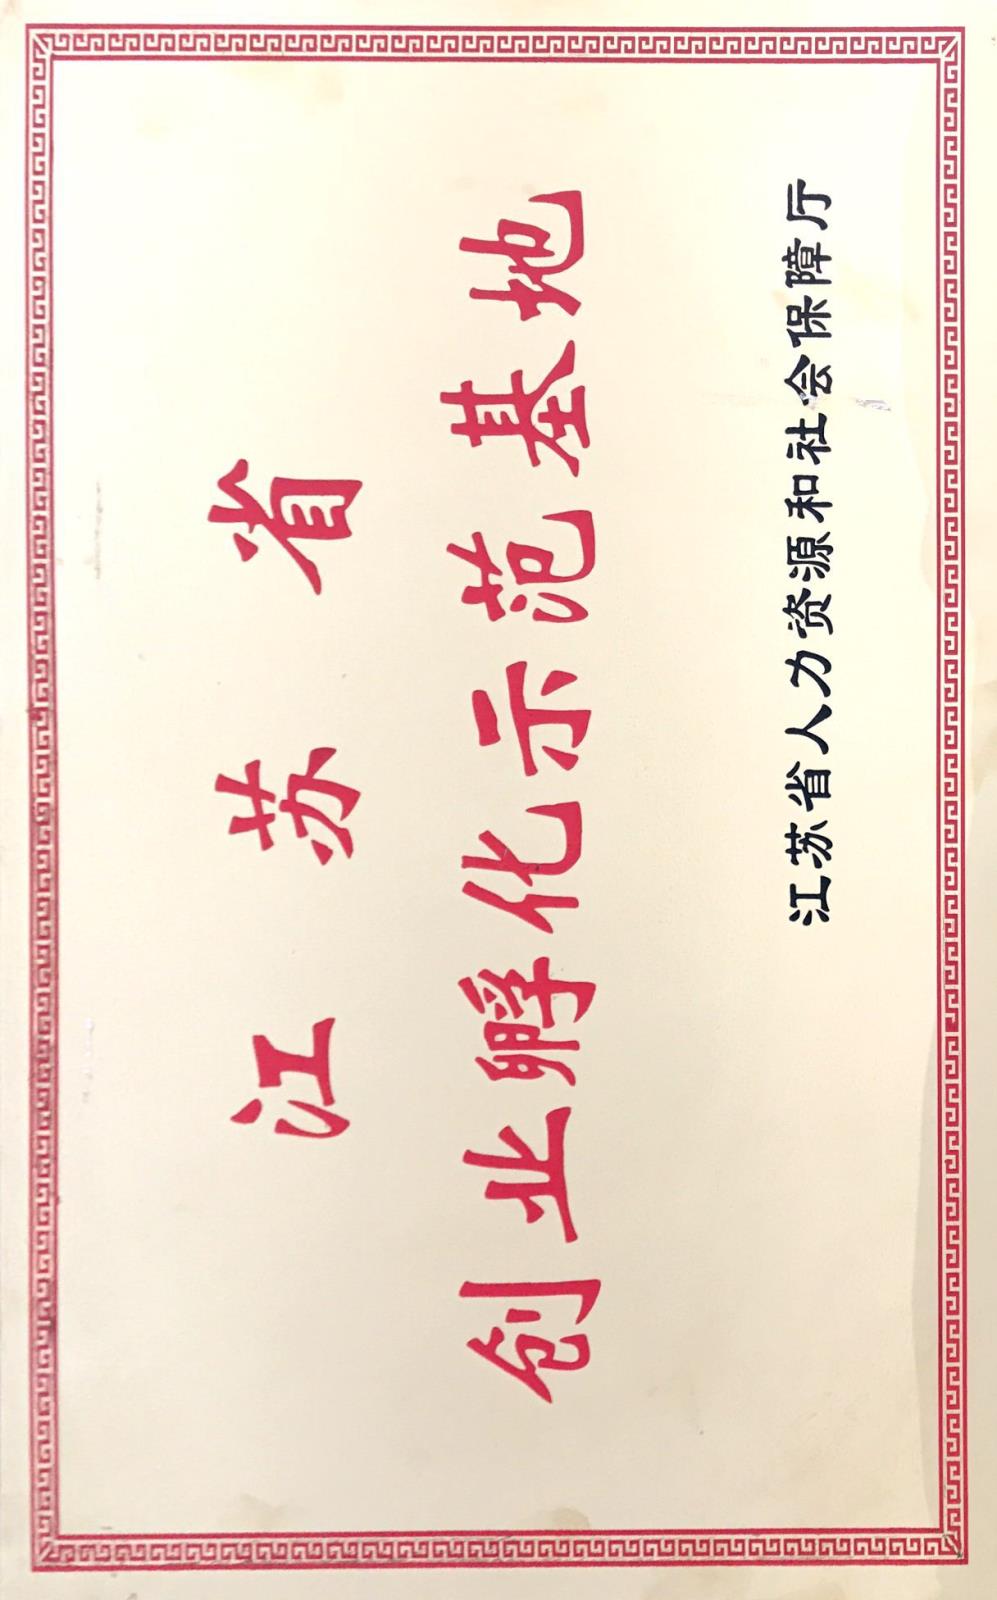 江苏省
创业孵化示范基地
江苏省人力资源和社会保障厅